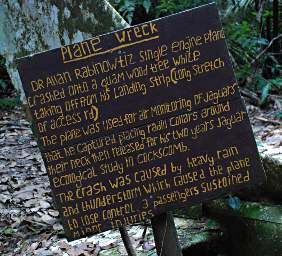 Plane Wreck
DR Allan Rabinowitz single engine plane
crashed onto a quam wood tree while
taking off from 's Landing Strip (Long Stretch
of access rd)
The plane was used for air Monitoring of Jaguars
that he captured placing radio Collars around
their neck then released for his two years Jaguar
ecological study in Cockscomb.
The crash was caused by heavy rain
and thunderstorm which caused the plane
to lose control, 3 passengers sustained
Minor Injuries